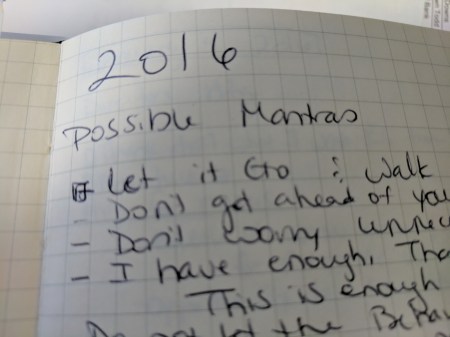 2016
Possible Mantras
Let it Go : Walk
- Don't get ahead of you
- Don't worry unnec
- I have enough, Tha
This is enough
Do not let the Behav